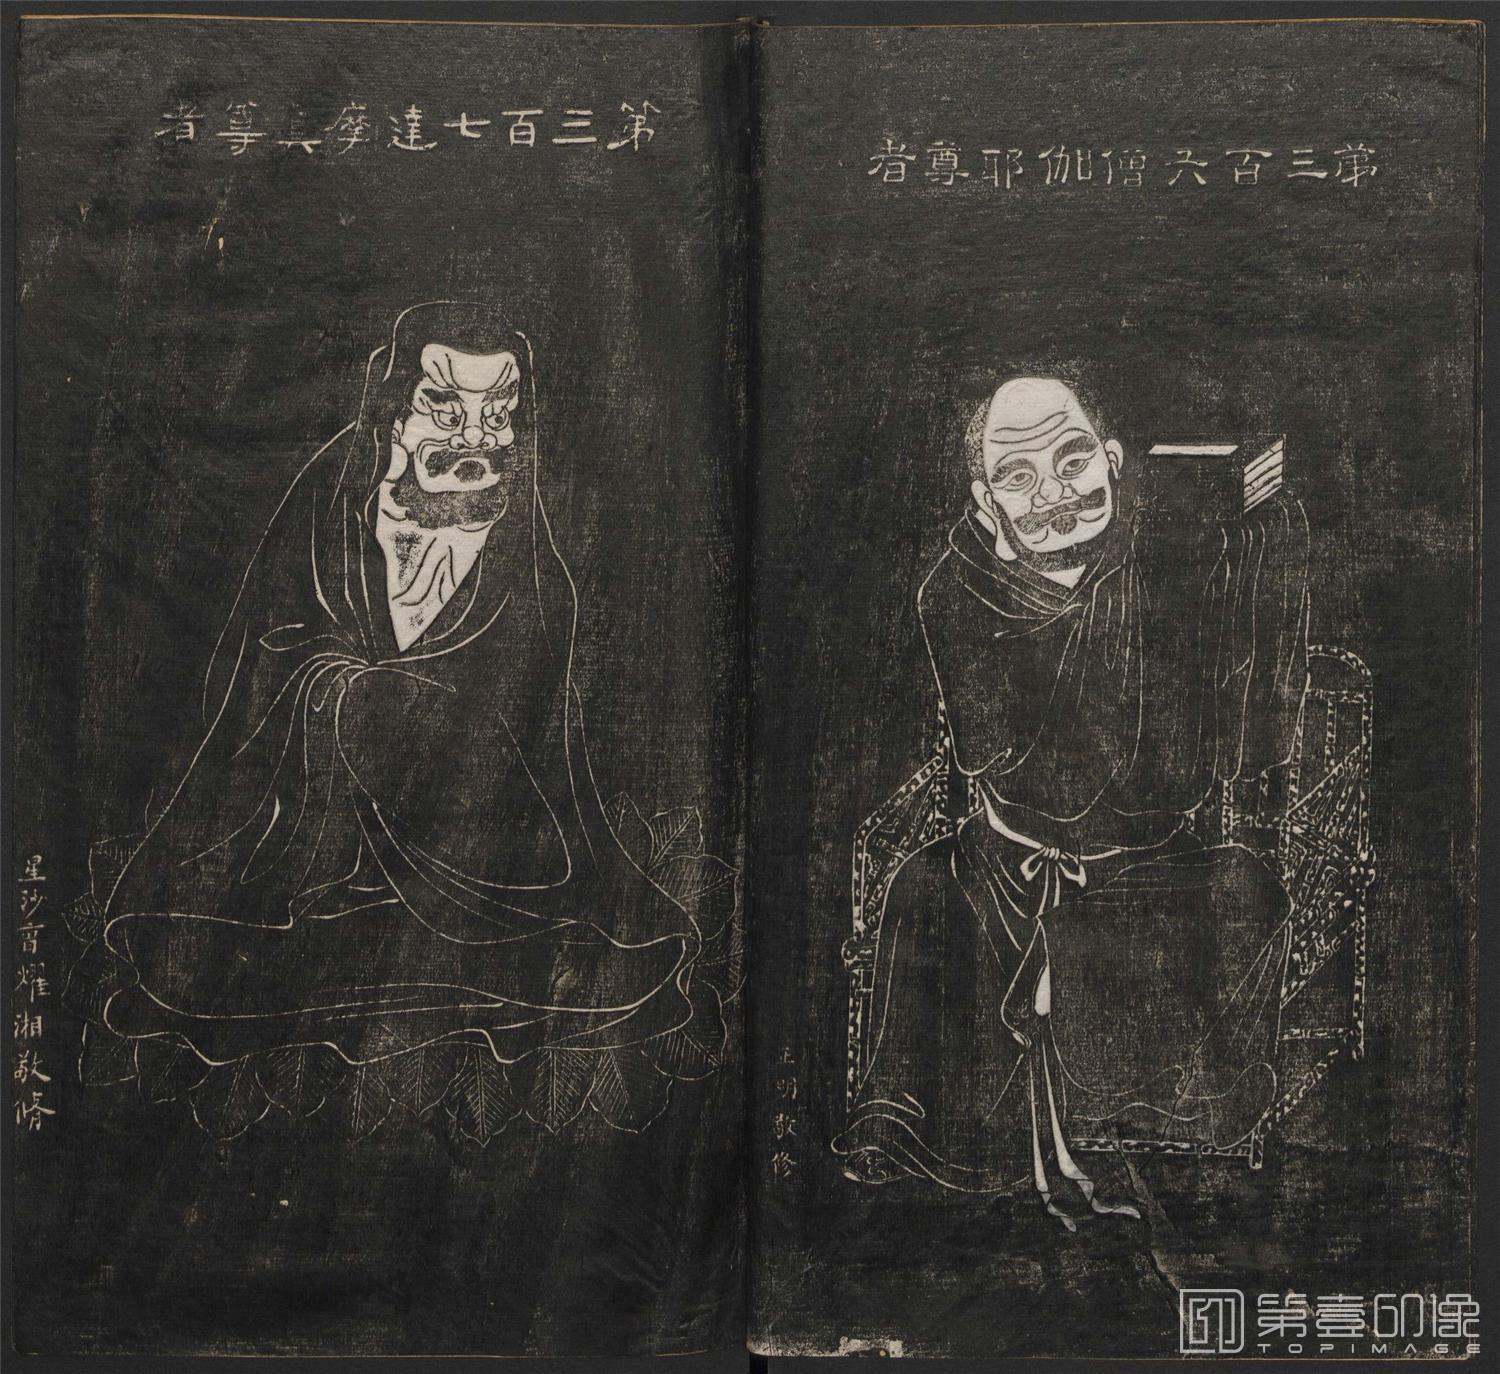 第三百六僧伽耶尊者
正明敬修
第三百七達摩真尊者
星沙育燿湘敬脩
第壹印像
TOPIMAGE